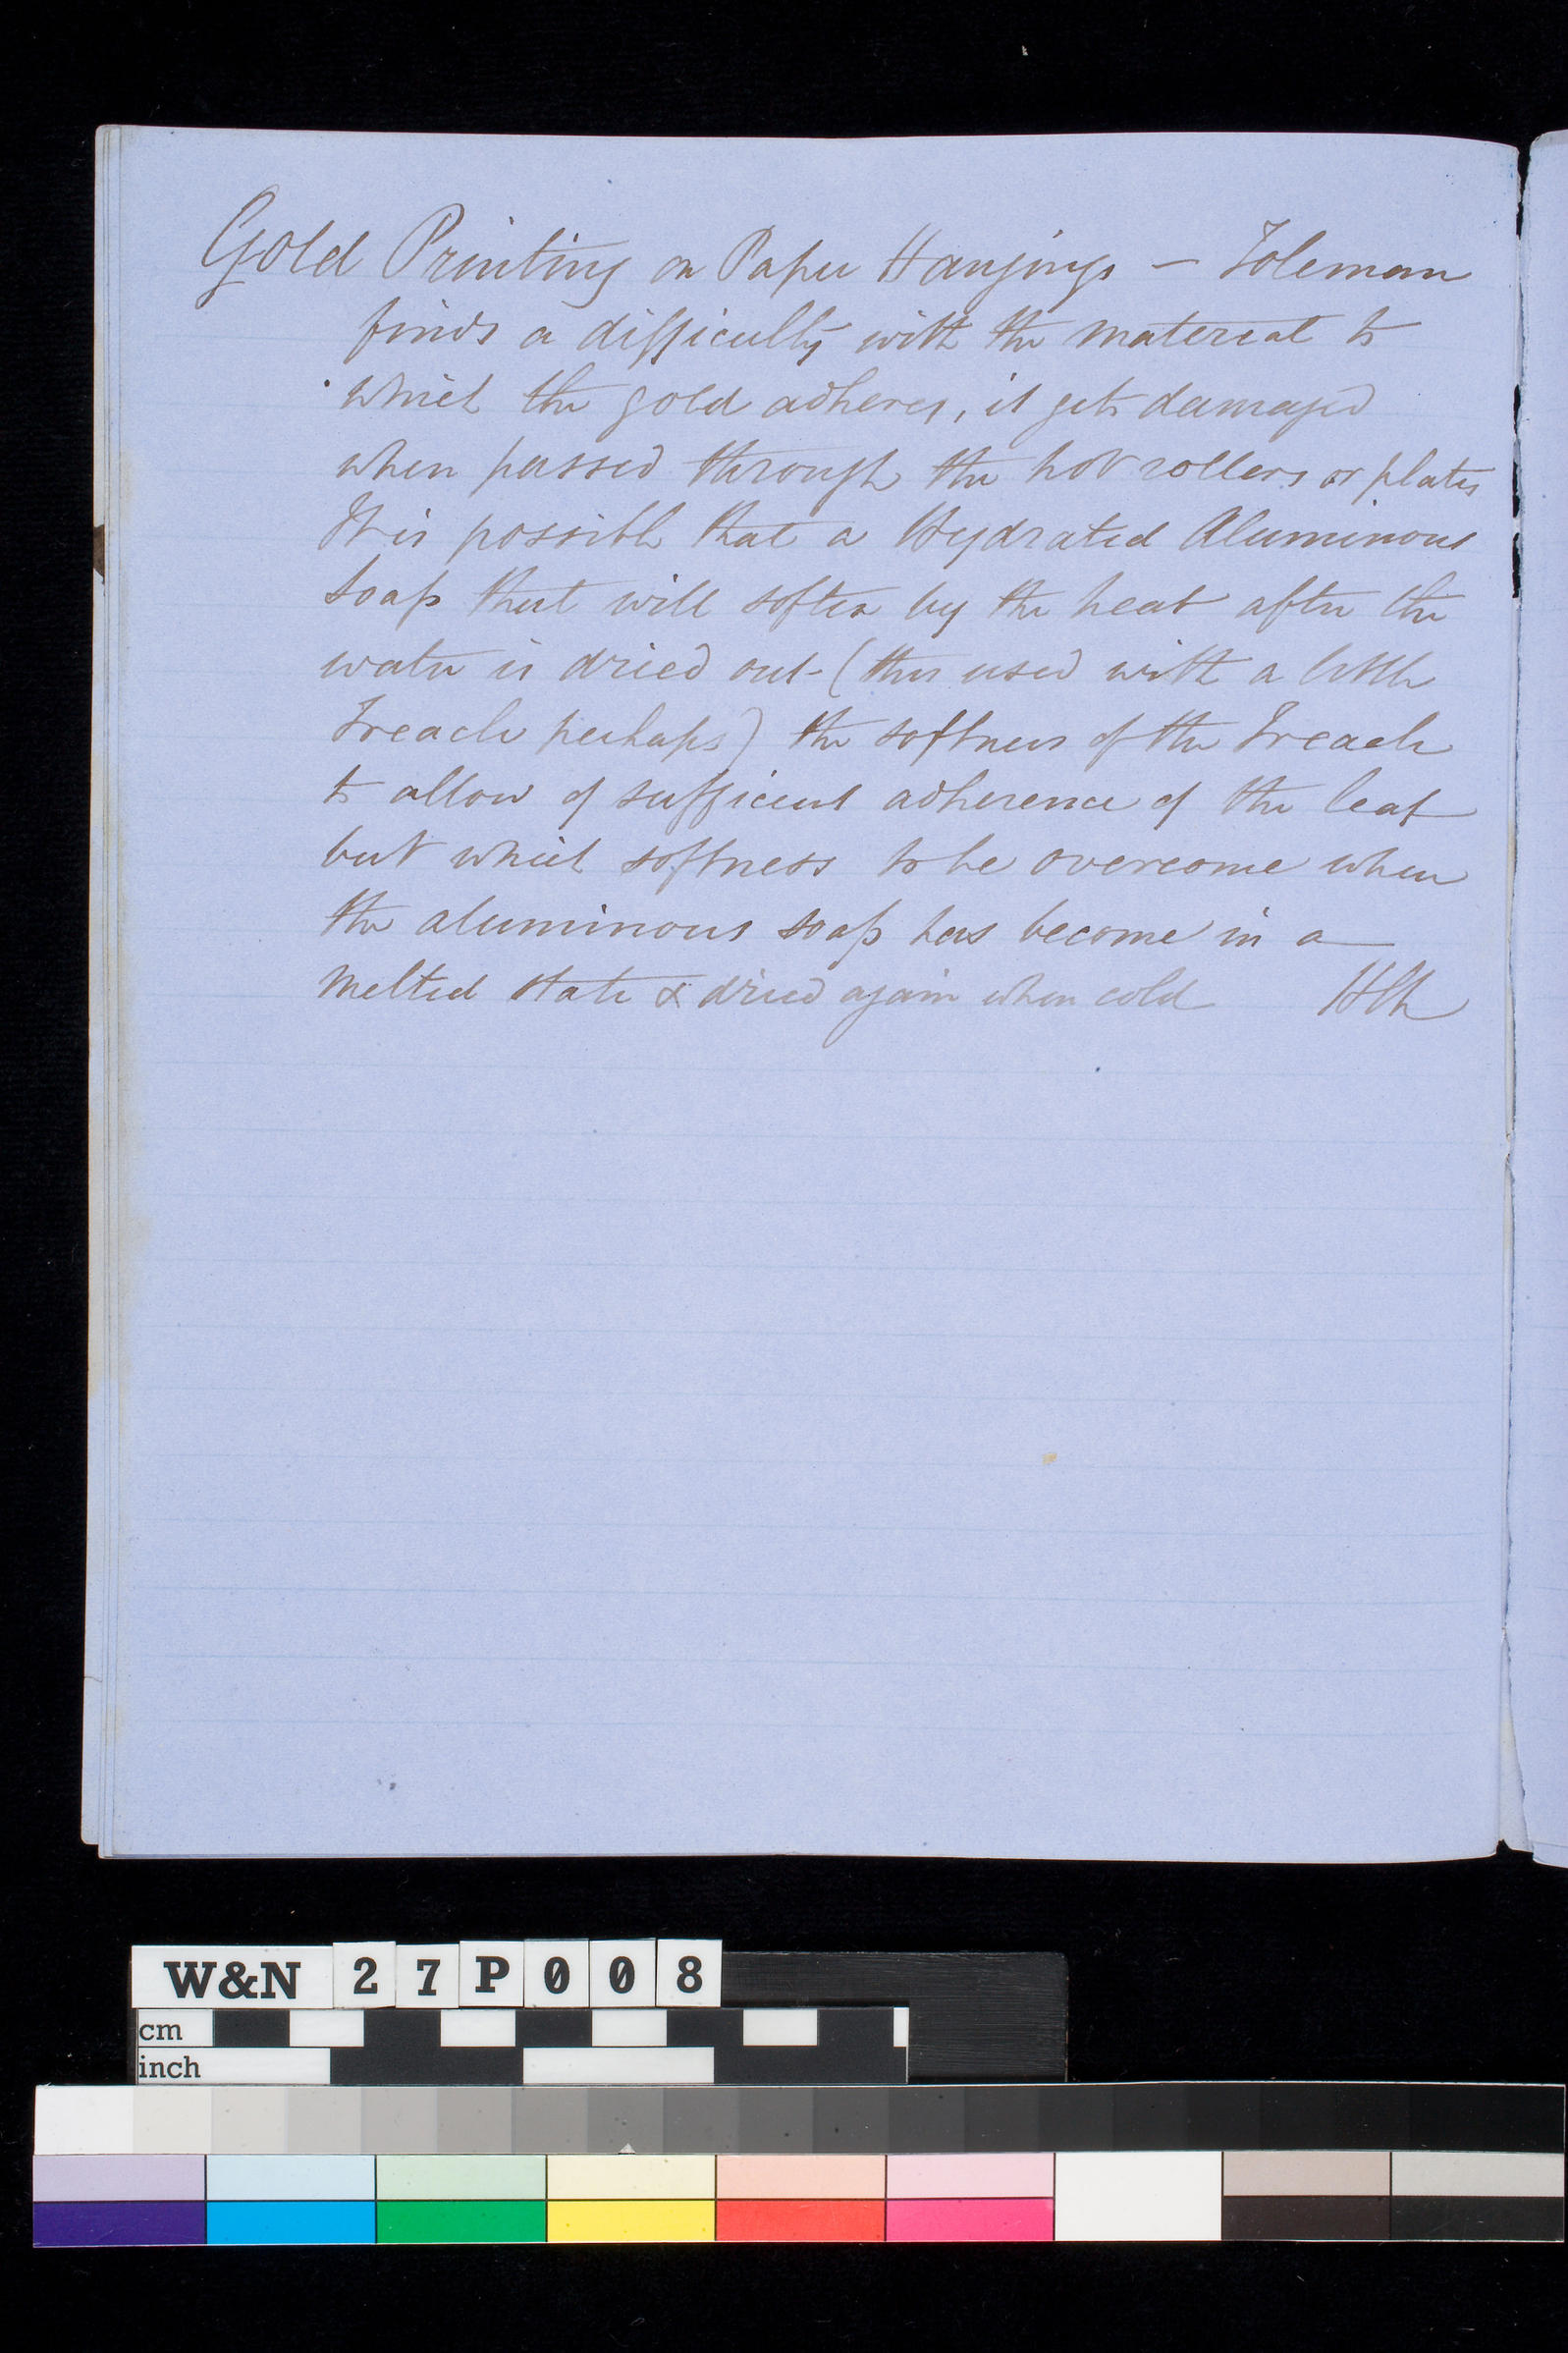 Gold Printing on Paper Hangings — Toleman
finds a difficulty with the material to
which the gold adheres, it gets damaged
when passed through the hot rollers or plates
It is possible that a Hydrated Aluminous
soap that will soften by the heat after the
water is dried out - (this used with a little
Treacle perhaps) the softness of the Treacle
to allow of sufficient adherence of the leaf
but which softness to be overcome when
the aluminous soap has become in a
melted state & dried again when cold
W&N 27P008
cm
inch